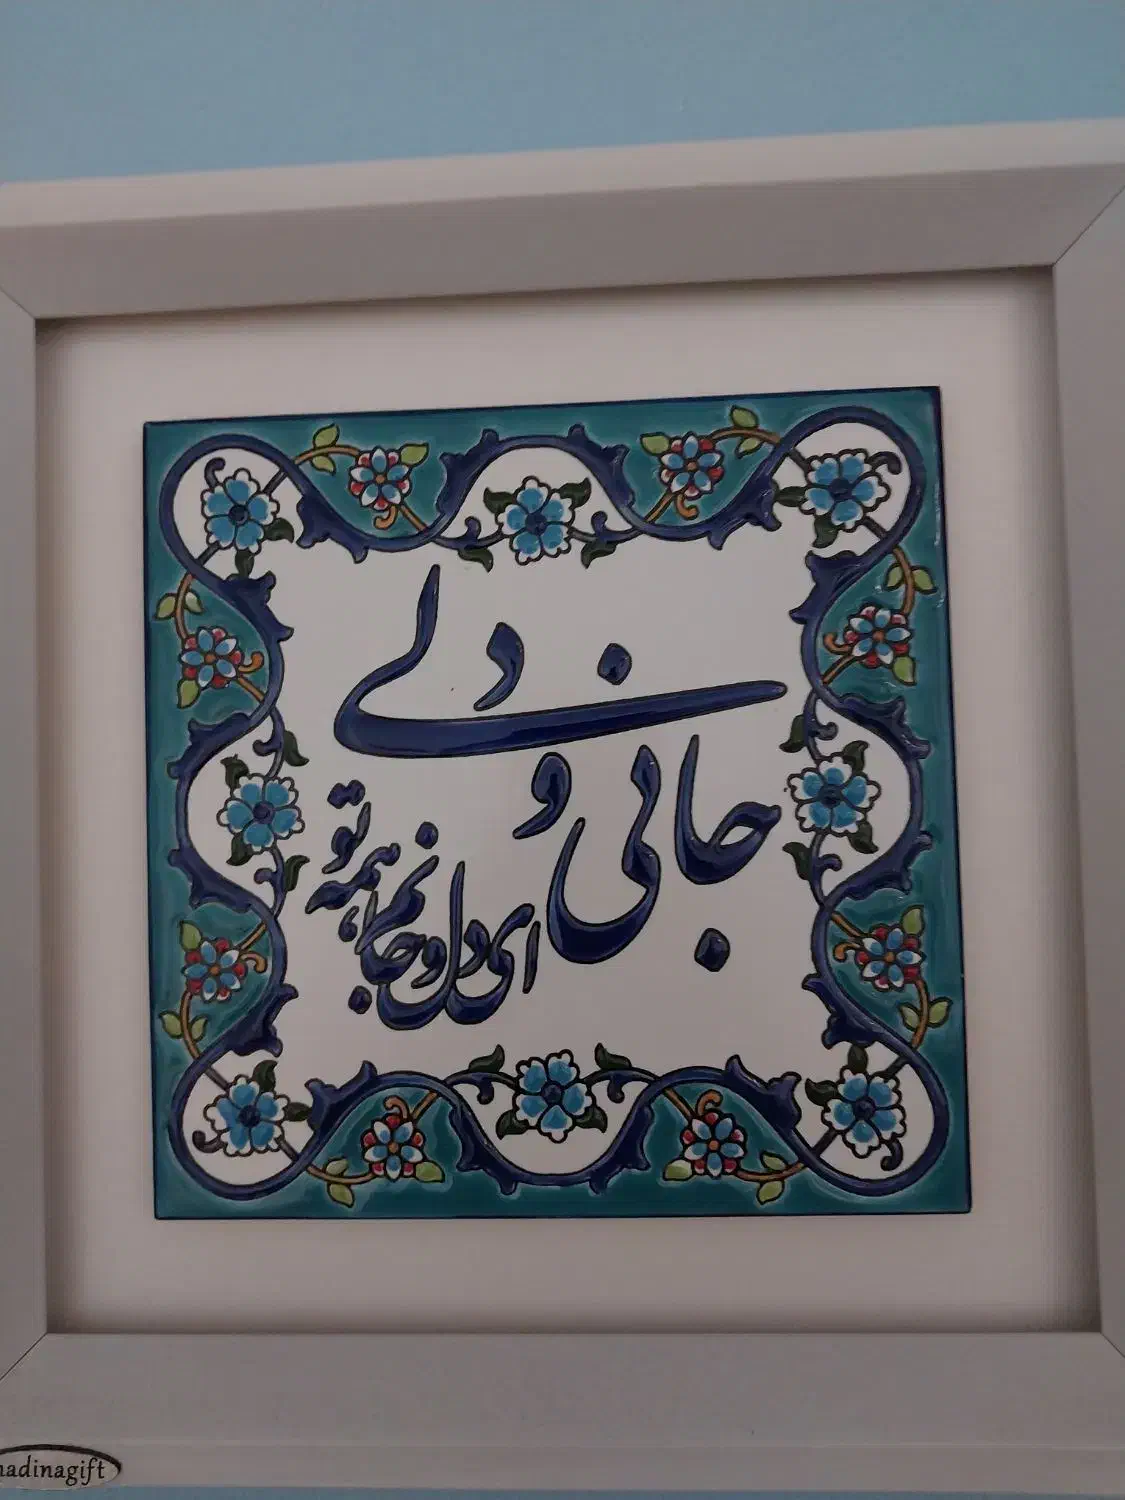 جانی و دلی
ای دل و جانم همه تو
nadinagift